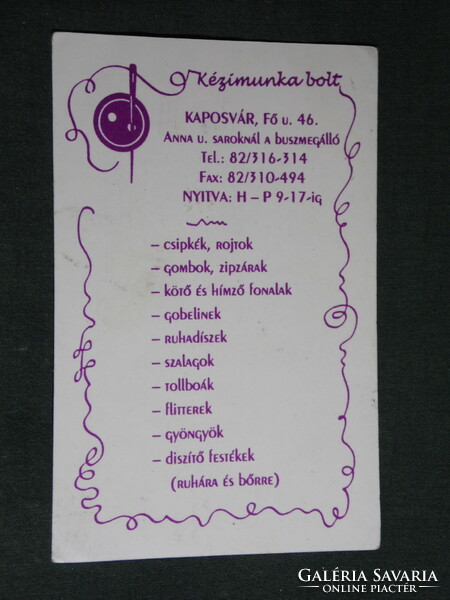 Kézimunka bolt
KAPOSVÁR, Fő u. 46.
Anna u. saroknál a buszmegálló
Tel.: 82/316-314
Fax: 82/310-494
NYITVA: H – P 9-17-ig
– csipkék, rojtok
– gombok, zipzárak
– kötő és hímző fonalak
– gobelinek
– ruhadíszek
– szalagok
– tollboák
– flitterek
– gyöngyök
– diszítő festékek
(ruhára és bőrre)
GALÉRIA SAVARIA
ONLINE PIACTÉR